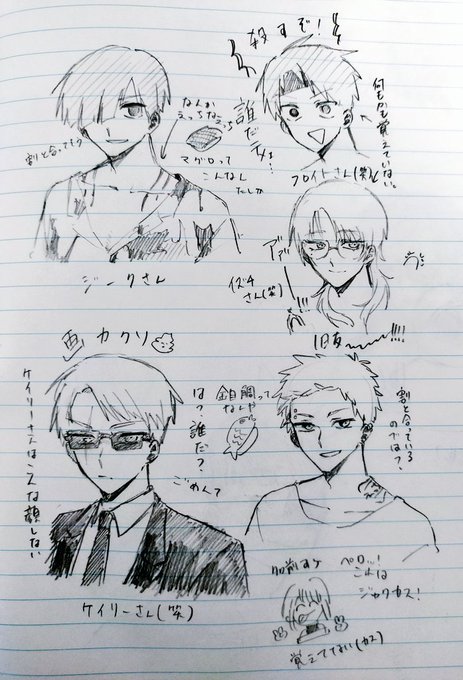 殺すぞ!
何もかも覚えていない。
誰だテメェ…
フロイトさん(笑)
なんか
えっちだな
マグロって
こんなん
だしか
割と合ってそう
ジークさん
アァ
イズチ
さん(笑)
旧友〜〜!!!!
画力カクソ
ケイリーさんはこんな顔しない
は?誰だ?
ごめんて
金目鯛って
なんや
割と合っている
のでは?
ケイリーさん(笑)
ペロッ!
これは
ジャクカス!
覚えてない(カス)